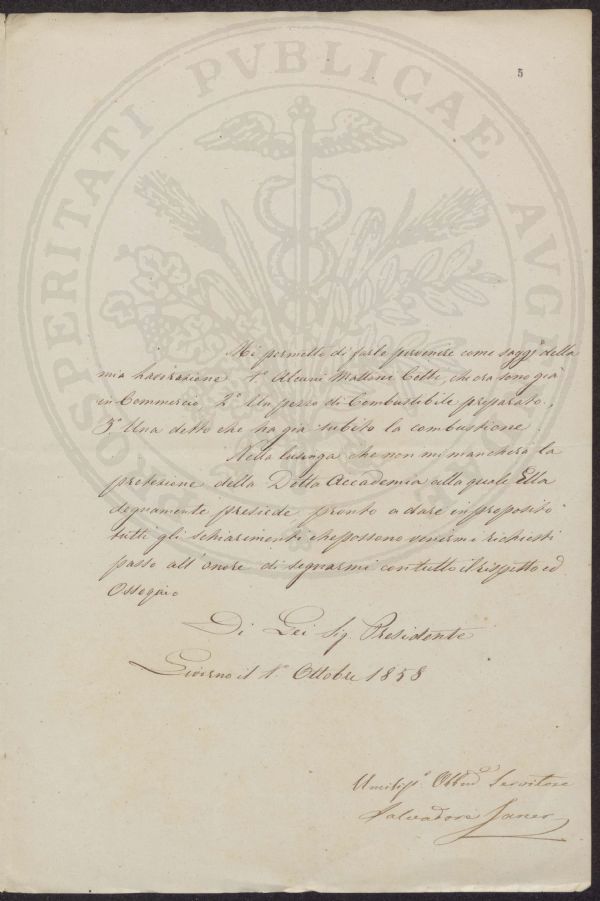 5
PROSPERITATI PVBLICAE AVGENDAE
Mi permetto di farle pervenire come saggi della
mia lavorazione 1º Alcuni Mattoni Cotti, che ora sono già
in Commercio 2º Un pezzo di Combustibile preparato,
3º Una detto che ha già subito la combustione.
Nella lusinga che non mi mancherà la
protezione della Dotta Accademia alla quale Ella
degnamente presiede pronto a dare in proposito
tutti gli schiarimenti che possono venirmi richiesti
passo all'onore di segnarmi con tutto il rispetto ed
Ossequio
Di Lei Sig. Presidente
Livorno il 1º Ottobre 1858
Umiliss.º Obbmo Servitore
Salvadore